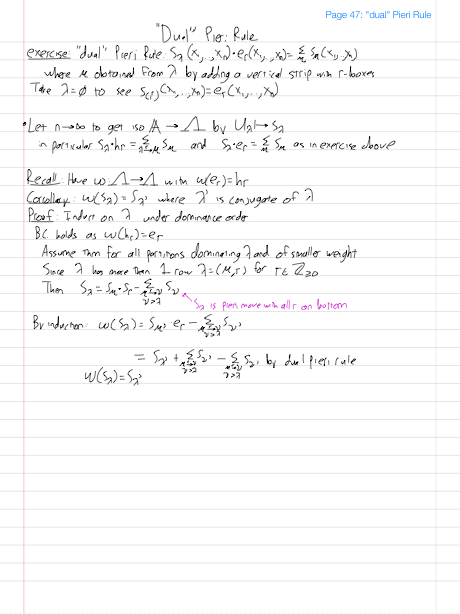 Page 47: "dual" Pieri Rule
"Dual" Pieri Rule
exercise: "dual" Pieri Rule: S_λ(x_1,...,x_n)·e_r(x_1,...,x_n) = Σ_μ S_μ(x_1,...,x_n)
where μ obtained from λ by adding a vertical strip with r-boxes
Take λ=∅ to see S_(1^r)(x_1,...,x_n)=e_r(x_1,...,x_n)
• Let n→∞ to get iso A → Λ by U_λ ↦ S_λ
in particular S_λ·h_r = Σ S_μ and S_λ·e_r = Σ S_μ as in exercise above
Recall: Have ω: Λ→Λ with ω(e_r)=h_r
Corollary: ω(S_λ) = S_λ' where λ' is conjugate of λ
Proof: Induct on λ under dominance order
B.C. holds as ω(h_r)=e_r
Assume thm for all partitions dominating λ and of smaller weight
Since λ has more than 1 row λ=(μ,r) for r∈ℤ_≥0
Then S_λ = S_μ·S_r − Σ_{ν>λ} S_ν
S_λ is pieri move with all r on bottom
By induction: ω(S_λ) = S_μ'·e_r − Σ_{ν>λ} S_ν'
= S_λ' + Σ_{ν>λ} S_ν' − Σ_{ν>λ} S_ν' by dual pieri rule
ω(S_λ)=S_λ'